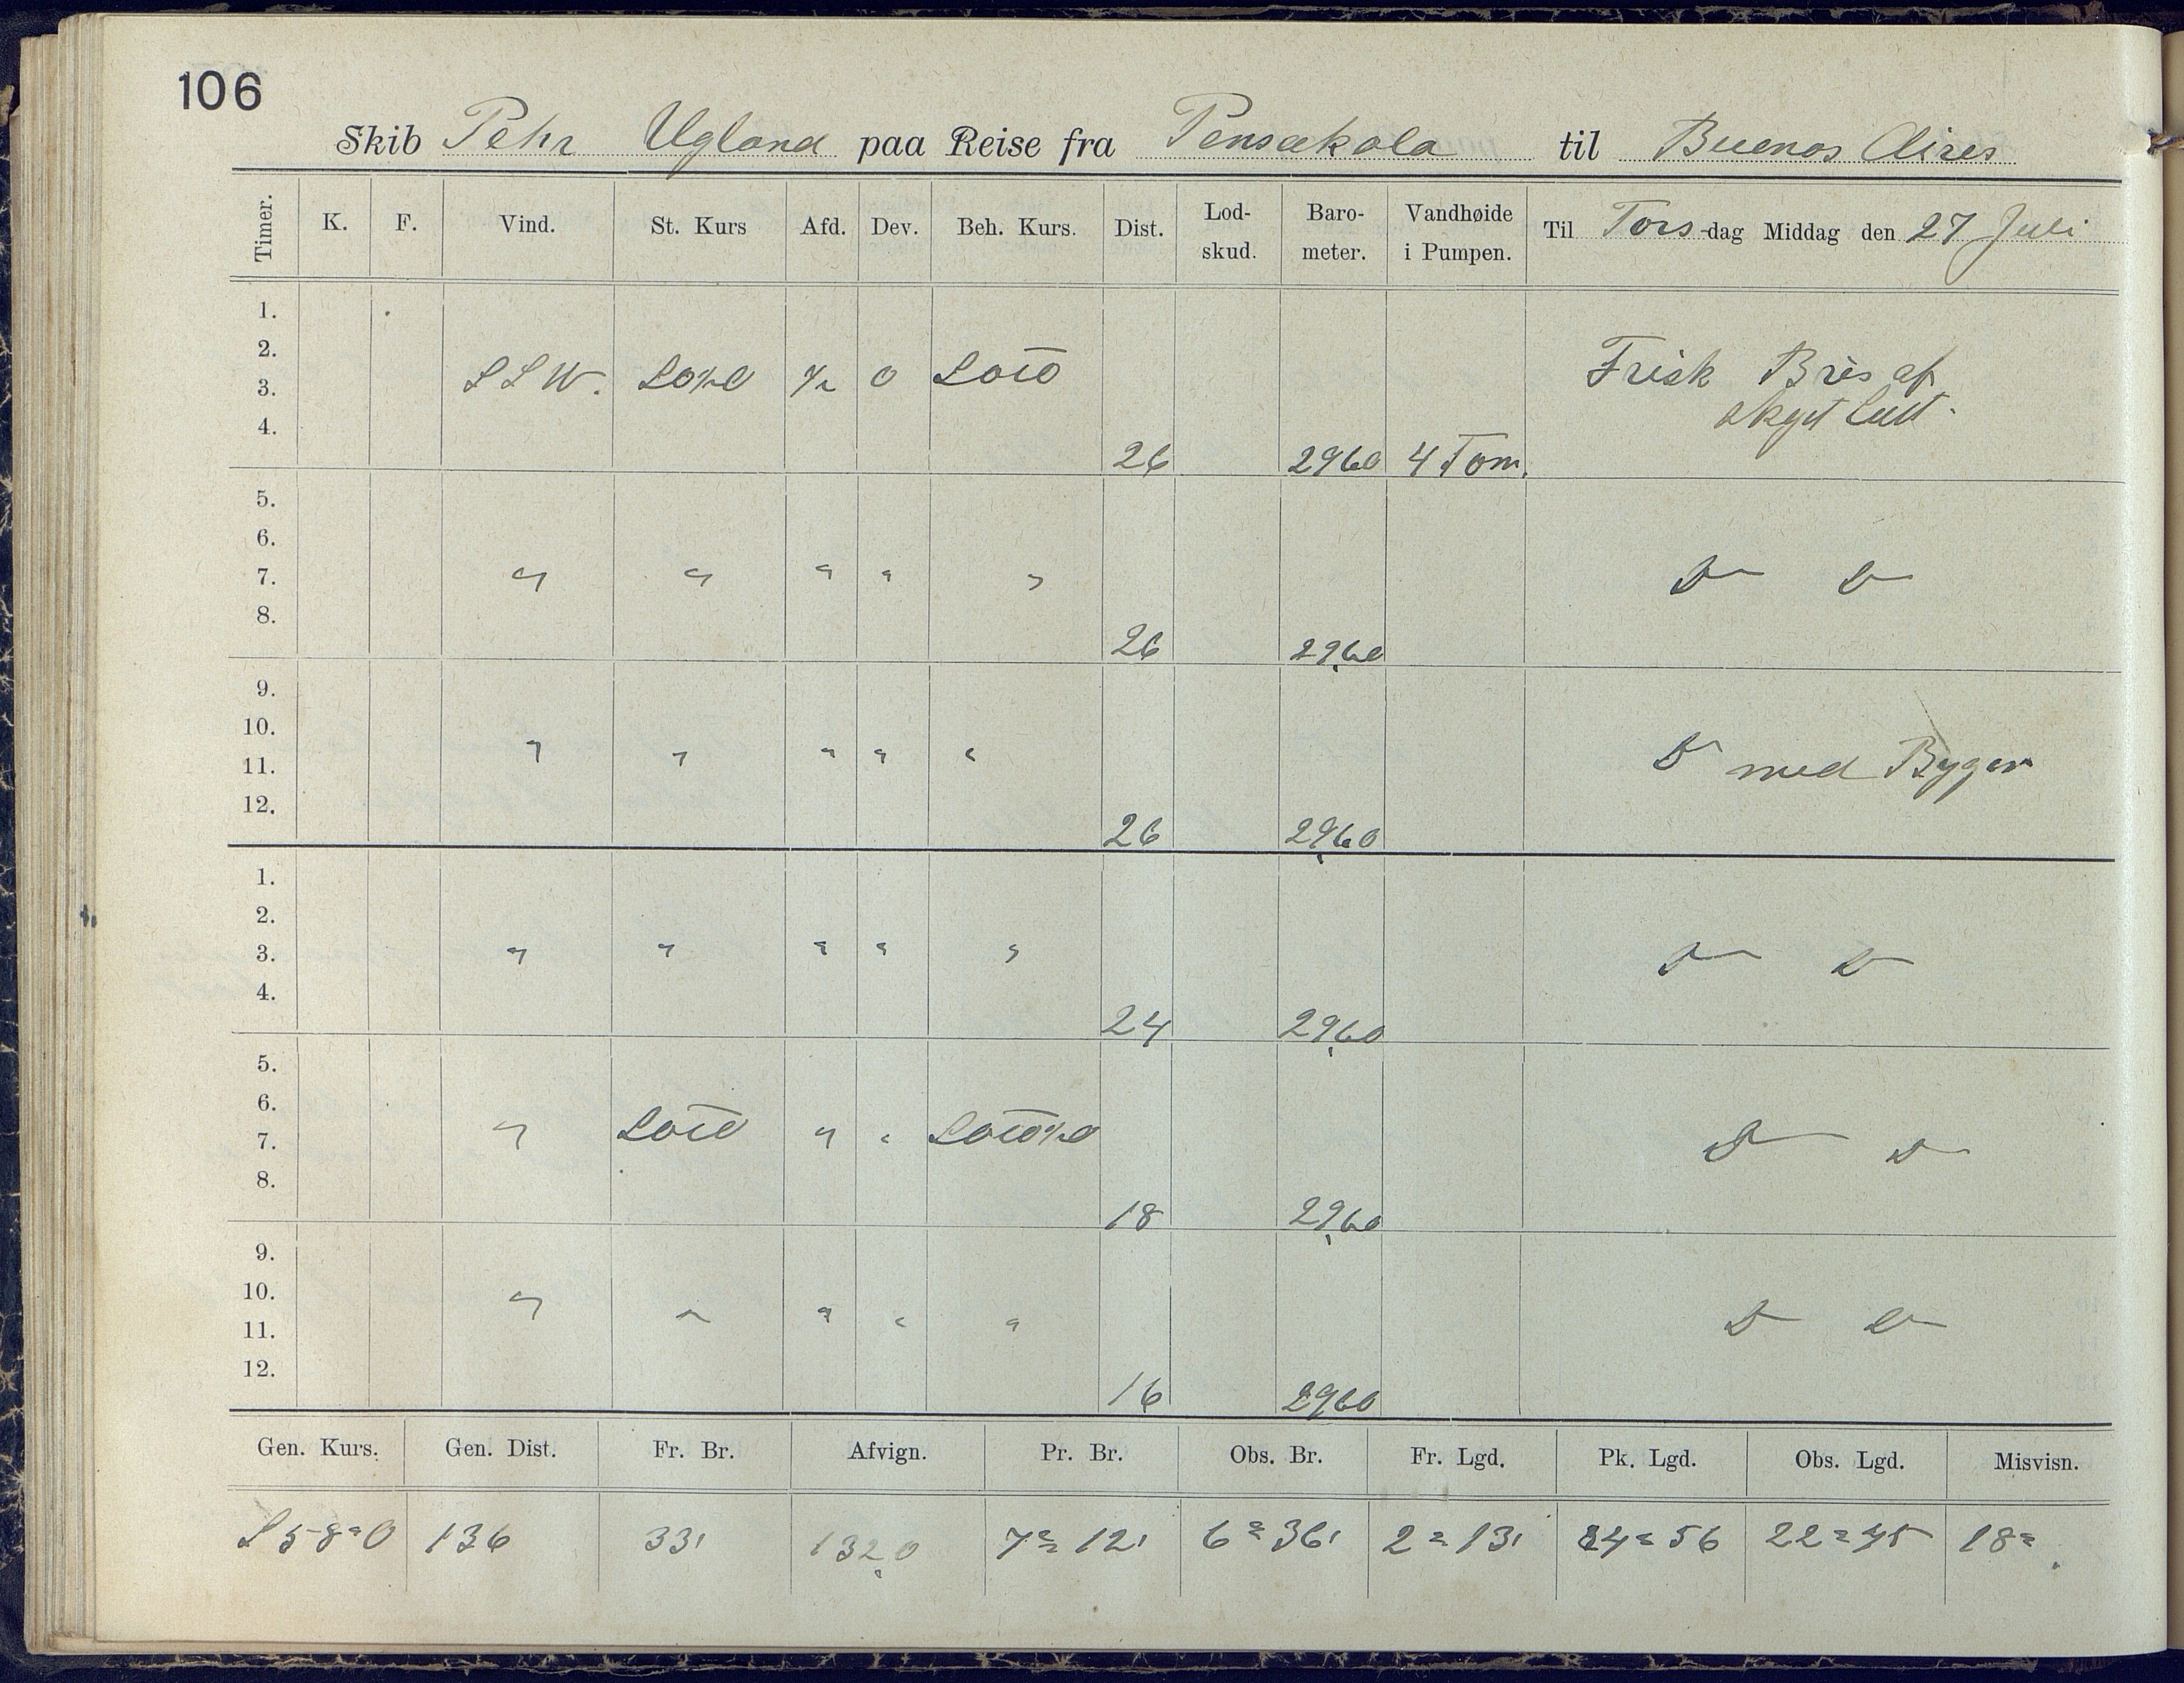 106
Skib Pehr Ugland paa Reise fra Pensakola til Buenos Aires
Timer. K. F. Vind. St. Kurs Afd. Dev. Beh. Kurs. Dist. Lod-skud. Baro-meter. Vandhøide i Pumpen. Til Tors-dag Middag den 27 Juli
1.
2.
3. SSW. 0 Frisk Bris af
4. skyet luft.
26 2960 4 Tom.
5.
6.
7. " " " " " D D
8.
26 2960
9.
10.
11. " " " " " D med Byger
12.
26 2960
1.
2.
3. " " " " " D D
4.
24 2960
5.
6.
7. " " " D D
8.
18 2960
9.
10.
11. " " " " " D D
12.
16 2960
Gen. Kurs. Gen. Dist. Fr. Br. Afvign. Pr. Br. Obs. Br. Fr. Lgd. Pk. Lgd. Obs. Lgd. Misvisn.
S 58° O 136 33' 132,0 7° 12' 6° 36' 2° 13' 24° 56 22° 45 18°